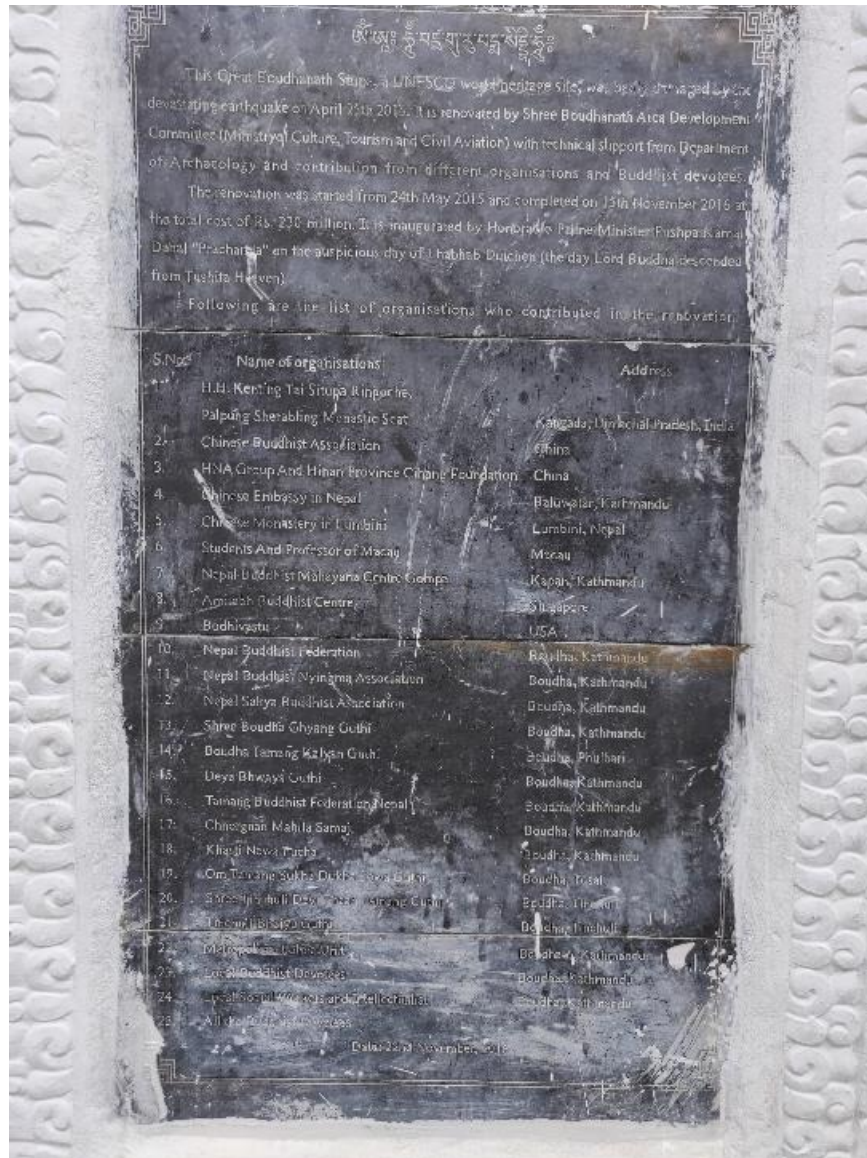 ཨོཾ་ཨཱཿ་ཧཱུྃ་བཛྲ་གུ་རུ་པདྨ་སིདྡྷི་ཧཱུྃ༔
This Great Boudhanath Stupa, a UNESCO world heritage site, was badly damaged by the
devastating earthquake on April 25th 2015. It is renovated by Shree Boudhanath Area Development
Committee (Ministry of Culture, Tourism and Civil Aviation) with technical support from Department
of Archaeology and contribution from different organisations and Buddhist devotees.
The renovation was started from 24th May 2015 and completed on 15th November 2016 at
the total cost of Rs. 230 million. It is inaugurated by Honorable Prime Minister Pushpa Kamal
Dahal "Prachanda" on the auspicious day of Lhabhab Dutchen (the day Lord Buddha descended
from Tushita Heaven)
Following are the list of organisations who contributed in the renovation.
S.No. Name of organisations Address
H.H. Kenting Tai Situpa Rinpoche,
Palpung Sherabling Monastic Seat Kangada, Himachal Pradesh, India
2. Chinese Buddhist Association China
3. HNA Group And Hinan Province Cihang Foundation China
4. Chinese Embassy in Nepal Baluwatar, Kathmandu
5. Chinese Monastery in Lumbini Lumbini, Nepal
6. Students And Professor of Macau Macau
7. Nepal Buddhist Mahayana Centre Gompa Kapan, Kathmandu
8. Amitabh Buddhist Centre Singapore
9. Bodhivastu USA
10. Nepal Buddhist Federation Boudha, Kathmandu
11. Nepal Buddhist Nyingma Association Boudha, Kathmandu
12. Nepal Sakya Buddhist Association Boudha, Kathmandu
13. Shree Boudha Ghyang Guthi Boudha, Kathmandu
14. Boudha Tamang Kalyan Guthi Boudha, Phulbari
15. Deya Bhwaya Guthi Boudha, Kathmandu
16. Tamang Buddhist Federation Nepal Boudha, Kathmandu
17. Chhergnan Mahila Samaj Boudha, Kathmandu
18. Khasti Nawa Boudha, Kathmandu
19. Om Tamang Sukha Dukha Guthi Boudha, Tusal
20. Shree Guthi Boudha, Tinchuli
21. Guthi Boudha, Tinchuli
22. Unit Boudha, Kathmandu
23. Local Buddhist Devotees Boudha, Kathmandu
24. Local Social Workers and Intellectuals Boudha, Kathmandu
25. All
Date: 22nd November,